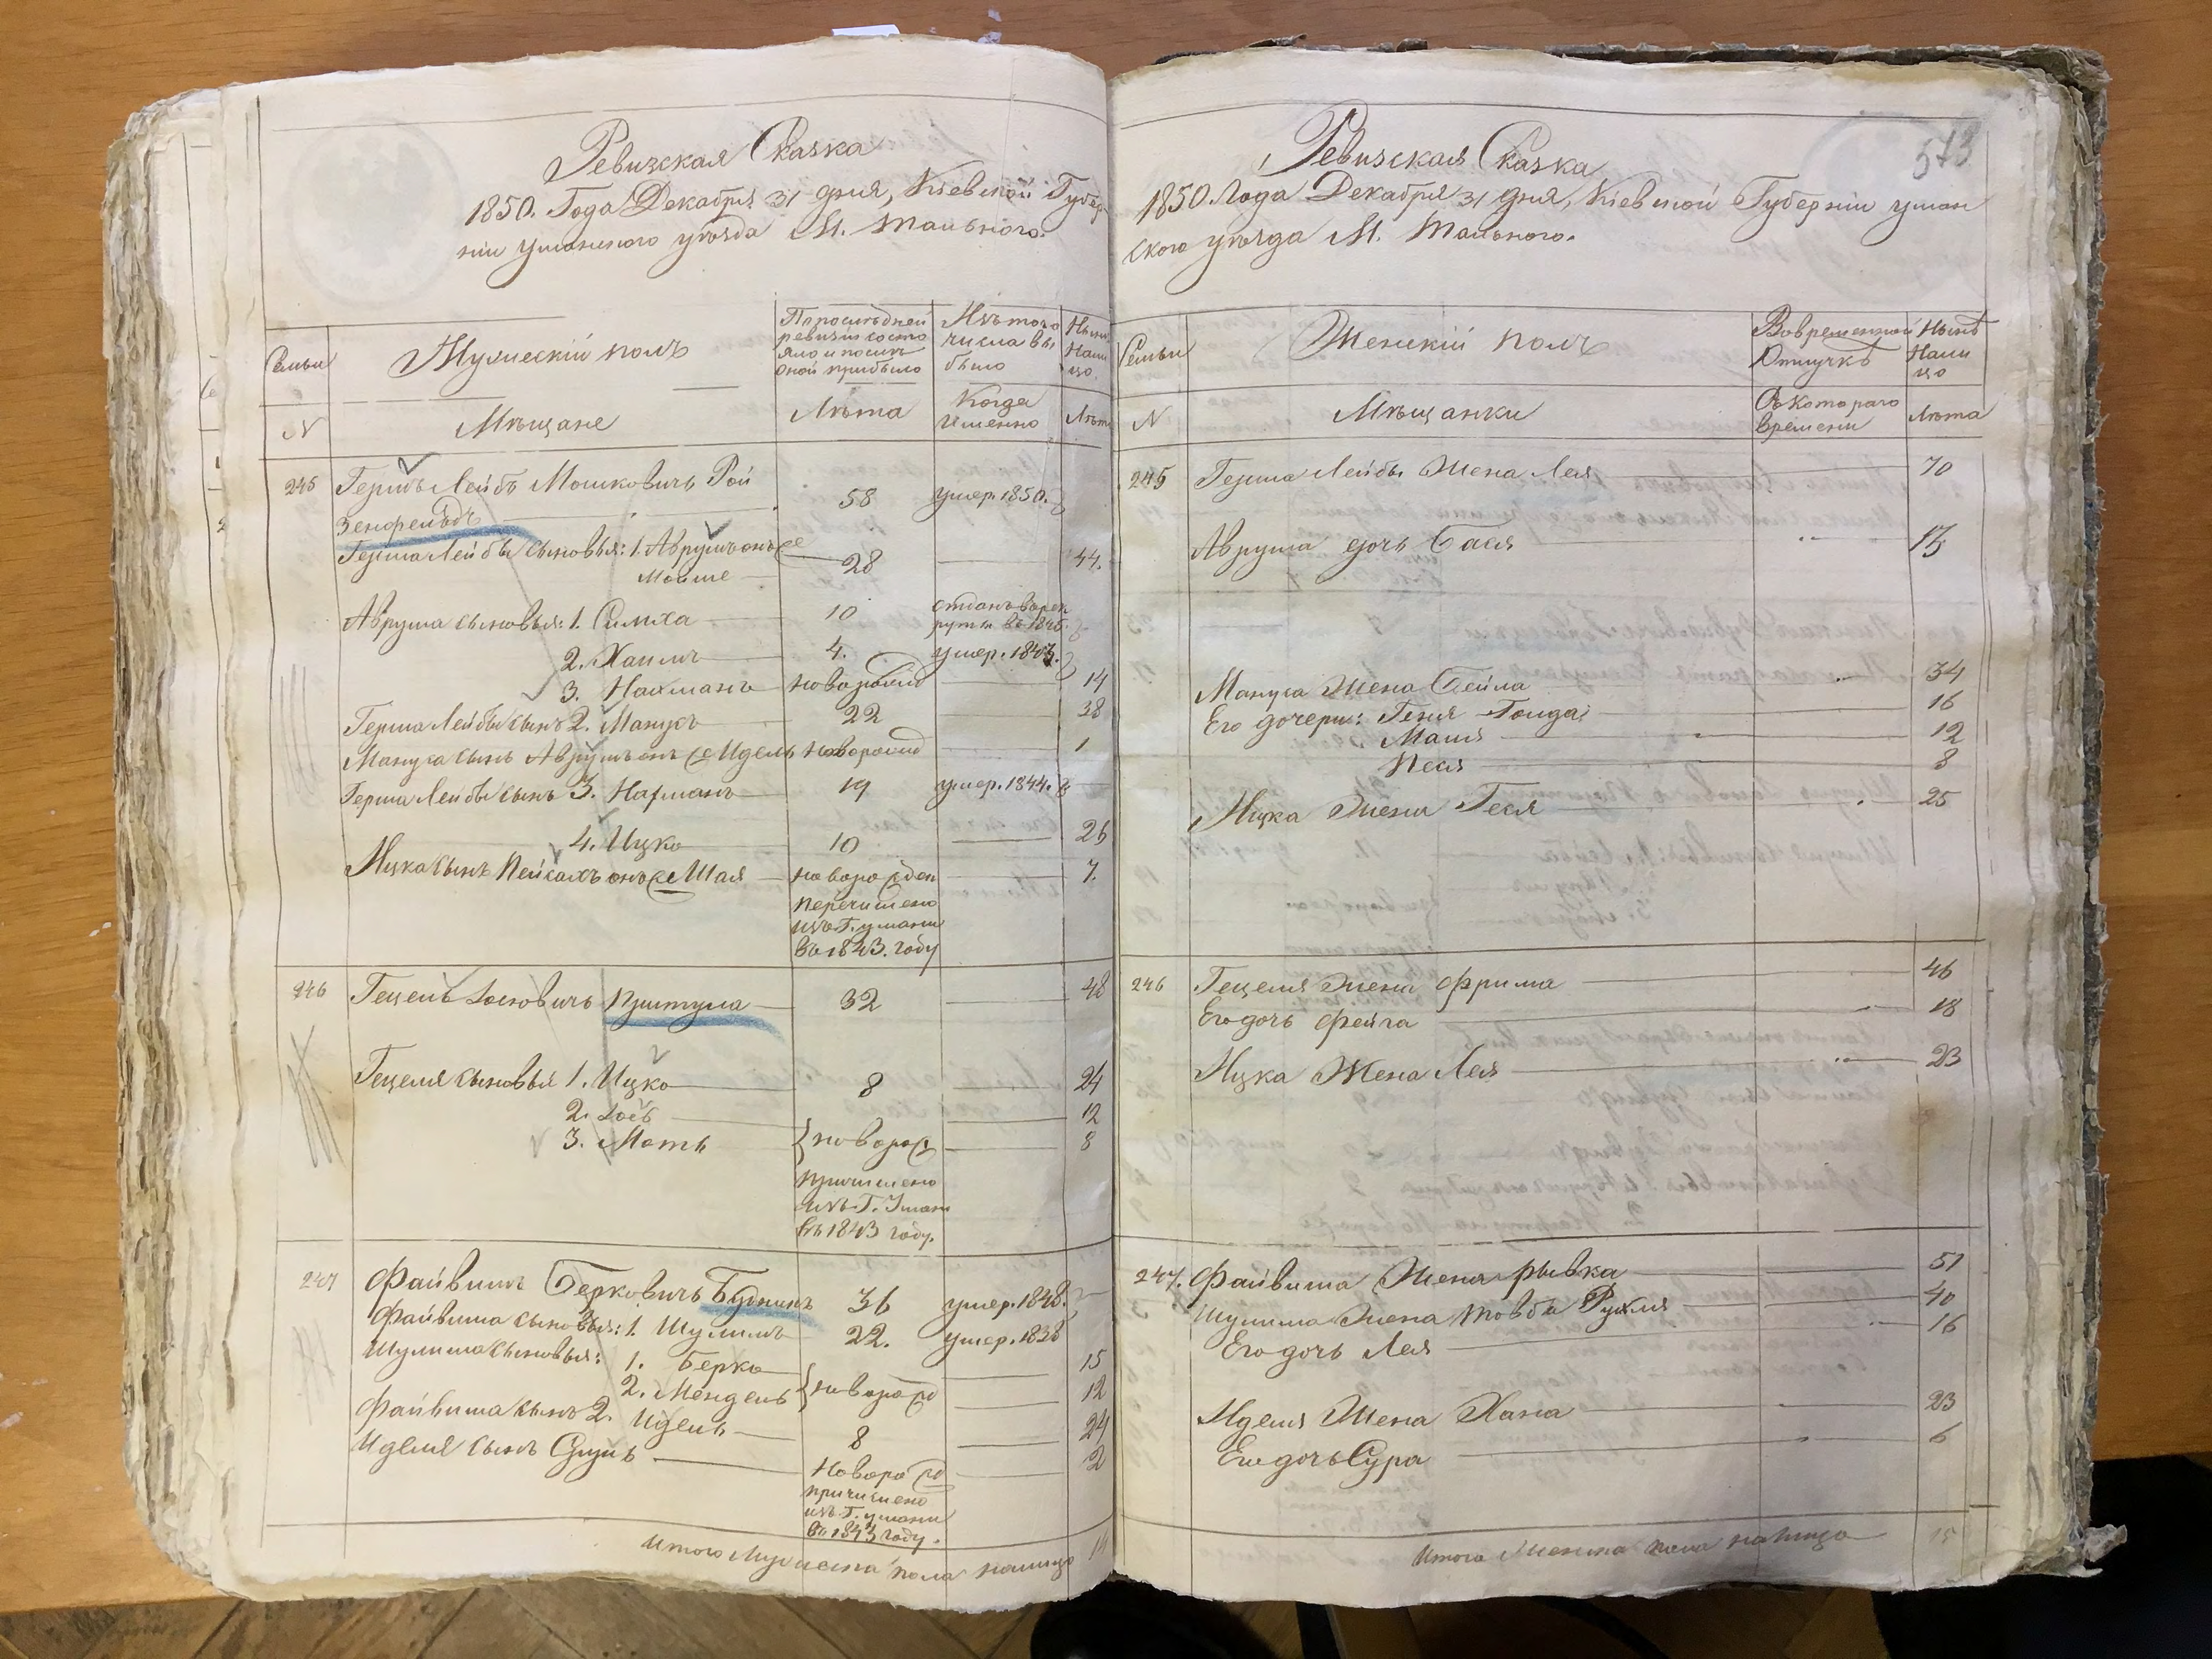 Ревизская Сказка
1850. Года Декабря 31 дня, Кіевской Губер
ніи уманского уѣзда М. Тального.
Семьи
Мужескій полъ
По послѣдней
ревизіи состо
яло и послѣ
оной прибыло
Изъ того
числа вы
было
Нынѣ
Нали
цо
N
Мѣщане
Лѣта
Когда
Именно
Лѣта
245
Гершъ Лейбъ Мошковичъ Рой
зенфельдъ
58
умер. 1850.
Герша Лейбы сыновья: 1. Аврумъ онъ же
Мойше
28
44.
Аврума сыновья: 1. Симха
10
отданъ в рек
руты въ 1845.
2. Хаимъ
4.
умер. 1843.
3. Нахманъ
новорожд
14
Герша Лейбы сынъ 2. Манусъ
22
38
Мануса сынъ Аврумъ онъ же Идель
новорожд
1
Герша Лейбы сынъ 3. Нахманъ
19
умер. 1844.
4. Ицко
10
26
Ицка сынъ Пейсахъ онъ же Шая
новорожден
7.
перечислено
изъ Г. умани
въ 1843. году
246
Гецель Іосіовичъ Притула
32
48
Гецеля сыновья 1. Ицко
8
24
2. Іось
12
3. Моть
новорожд
8
причислено
изъ Г. Умани
въ 1843 году.
247
Файвишъ Берковичъ Будникъ
36
умер. 1848.
Файвиша сыновья: 1. Шулимъ
22.
умер. 1838
Шулима сыновья: 1. Берко
15
2. Мендель
новорожд
12
Файвиша сынъ 2. Идель
8
24
Иделя сынъ Сруль
новорожд
2
причислено
изъ Г. умани
въ 1843 году.
Итого Мужеска пола налицо
573
Ревизская Сказка
1850. Года Декабря 31 дня, Кіевской Губерніи уман
ского уѣзда М. Тального.
Семьи
Женскій полъ
Во временной
Отлучкѣ
Нынѣ
Нали
цо
N
Мѣщанки
Съ котораго
времени
Лѣта
245
Герша Лейбы Жена Лея
70
Аврума дочь Бася
13
Мануса Жена Бейла
34
Его дочери: Геня Голда
16
Маня
12
Песя
8
Ицка Жена Геся
25
246
Гецеля Жена Фрима
46
Его дочь Фейга
18
Ицка Жена Лея
23
247.
Файвиша Жена Рывка
51
Шулима Жена Товба Рухля
40
Его дочь Лея
16
Иделя Жена Хана
23
Его дочь Сура
6
Итого Женска пола налицо
15